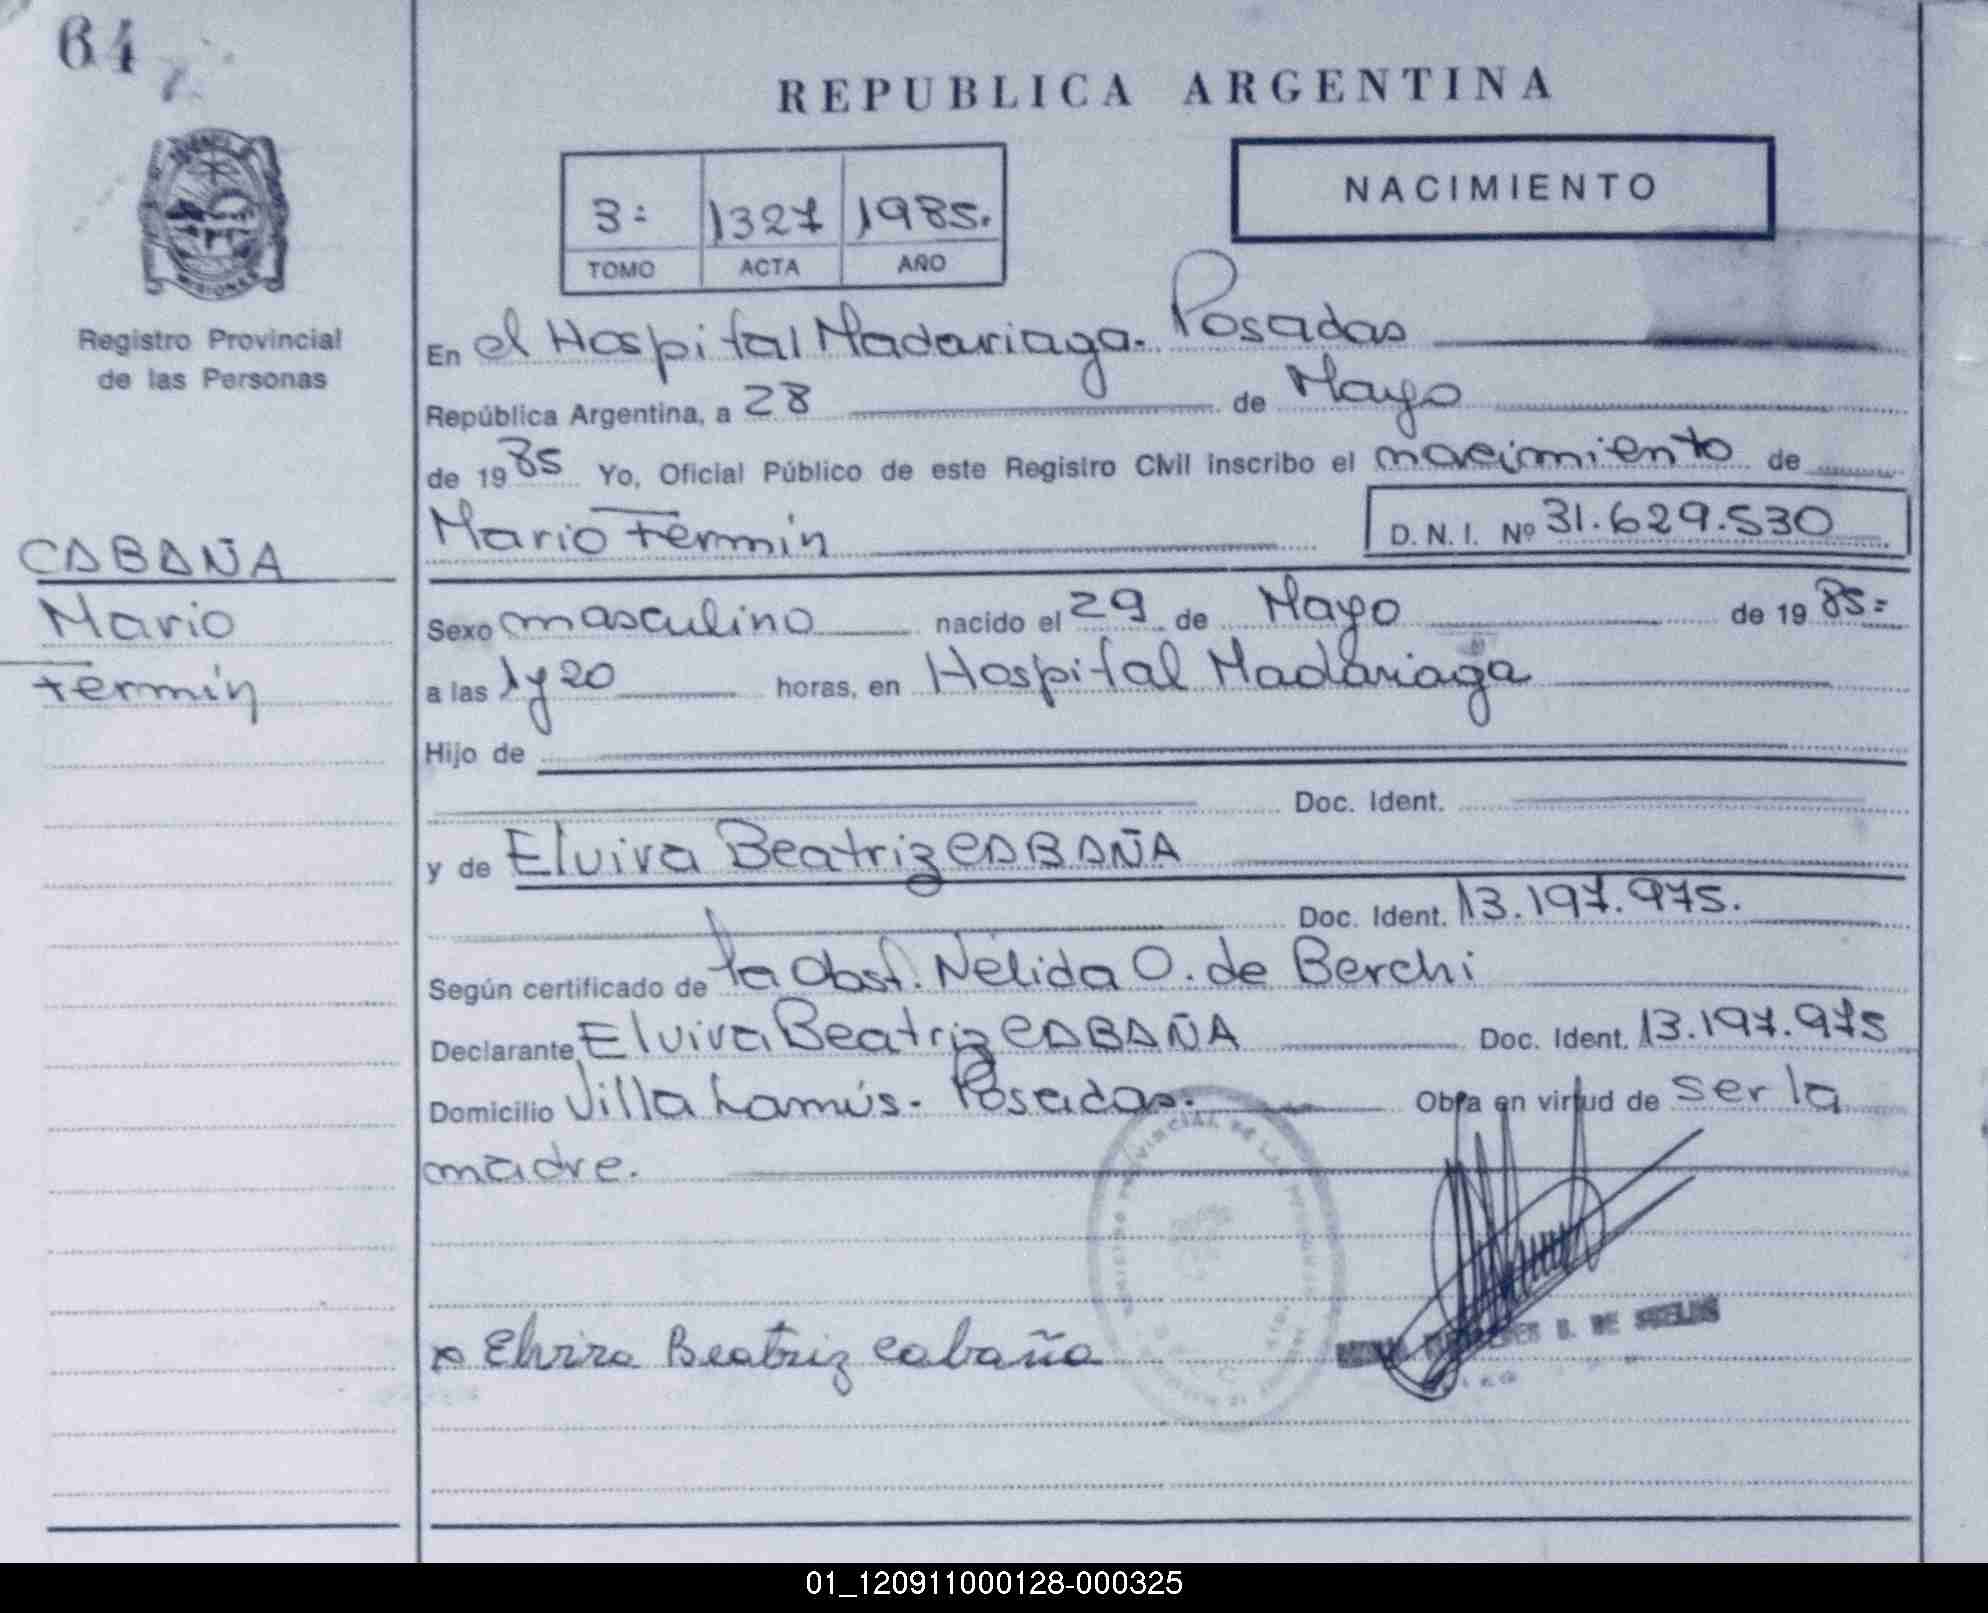 64
REPUBLICA ARGENTINA
NACIMIENTO
3= 1327 1985.
TOMO ACTA AÑO
MISIONES
Registro Provincial
de las Personas
CABAÑA
Mario
Fermín
En el Hospital Madariaga. Posadas
República Argentina, a 28 de Mayo
de 1985 Yo, Oficial Público de este Registro Civil inscribo el nacimiento de
Mario Fermín D. N. I. Nº 31.629.530
Sexo masculino nacido el 29 de Mayo de 1985=
a las 1 y 20 horas, en Hospital Madariaga
Hijo de
Doc. Ident.
y de Elvira Beatriz CABAÑA
Doc. Ident. 13.197.975.
Según certificado de la Obst. Nélida O. de Berchi
Declarante Elvira Beatriz CABAÑA Doc. Ident. 13.197.975
Domicilio Villa Lanús - Posadas. Obra en virtud de ser la
madre.
PROVINCIAL DE LAS
x Elvira Beatriz Cabaña
B. DE
01_120911000128-000325